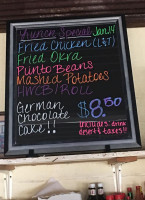 Lunch Special Jan. 14
Fried Chicken (L&T)
Fried Okra
Pinto Beans
Mashed Potatoes
HWCB/ROLL
German
Chocolate
Cake!!
$8.50
includes drink
desert & taxes!!